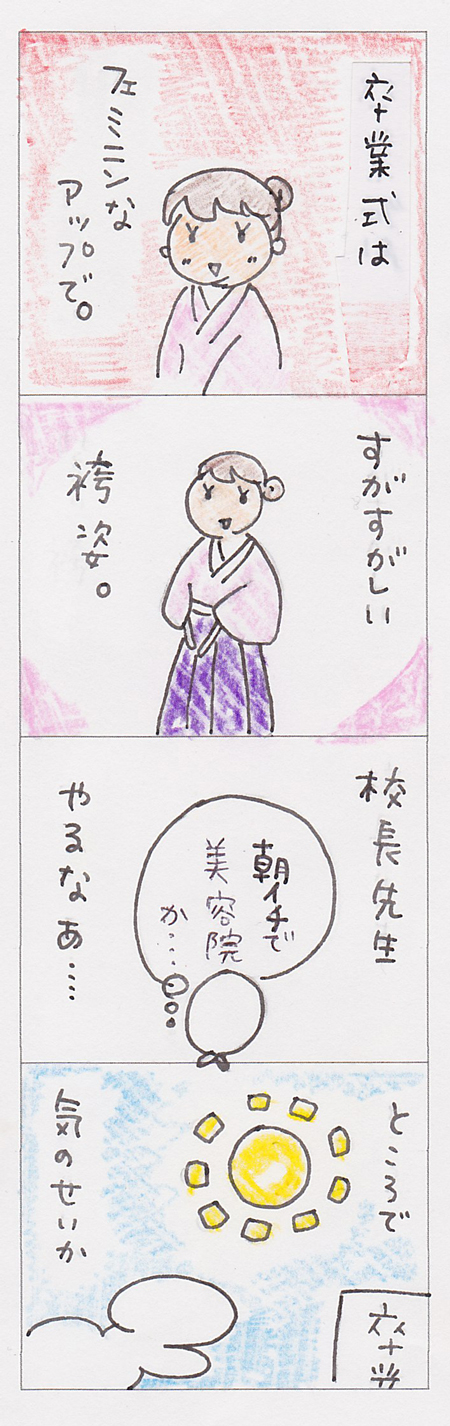 卒業式は
フェミニンな
アップで。
すがすがしい
袴姿。
校長先生
朝イチで
美容院
か・・・
やるなあ・・・・
ところで
気のせいか
卒業